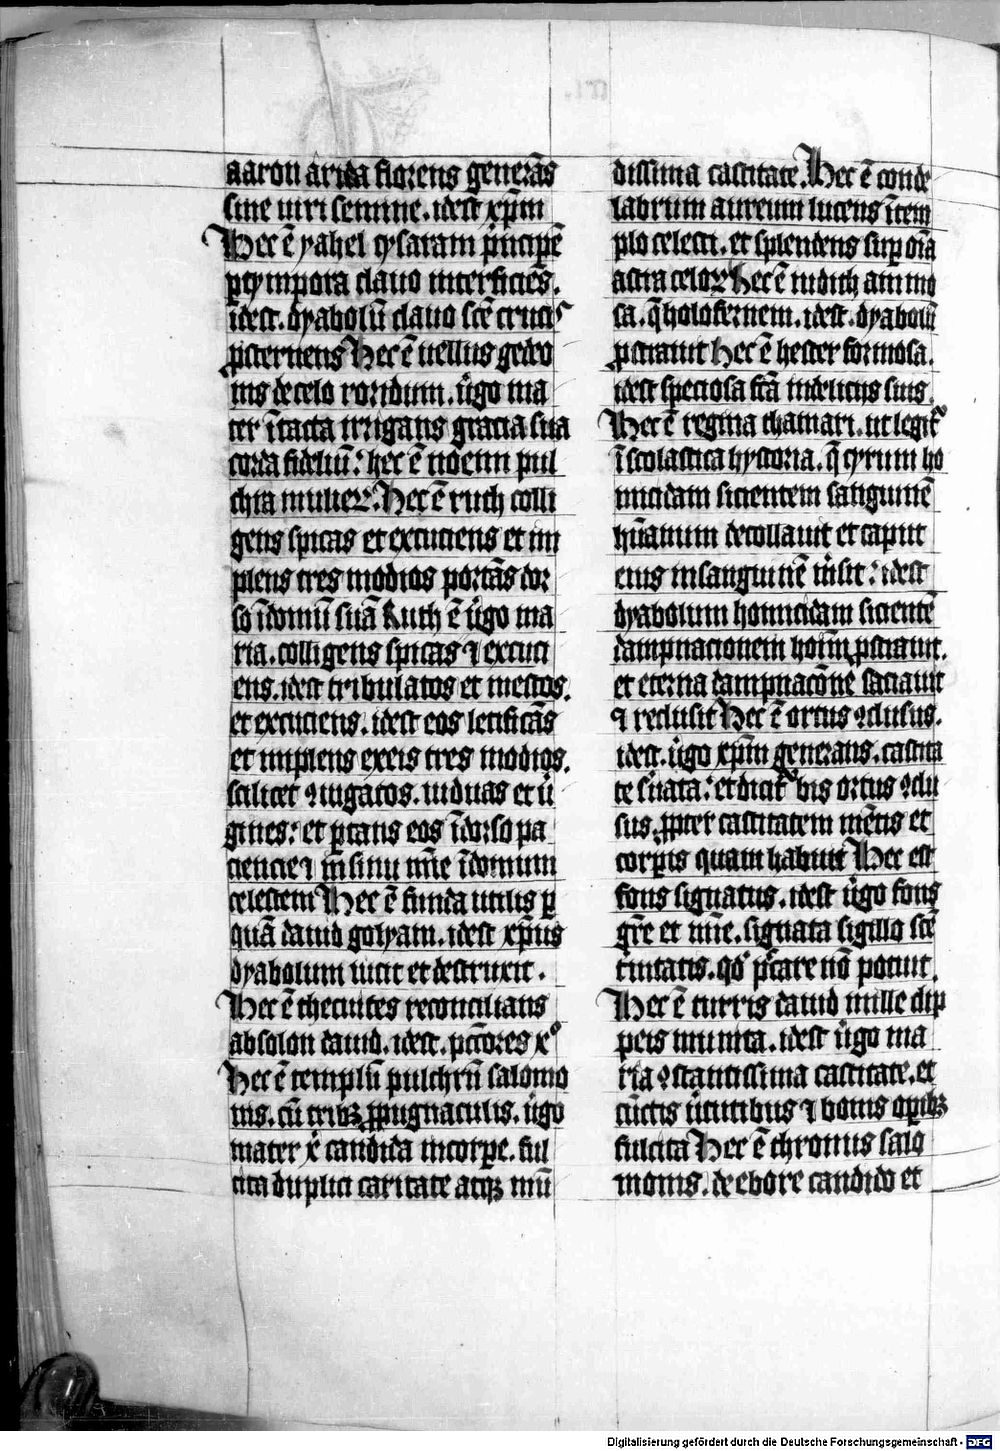 aaron arida florens generās
sine uiri semine. idest xp̄m
Hec ē yahel cysaram p̄ncipē
ꝑtympora clauo interficiēs.
idest. dyabolū clauo scē crucis
ꝓsternens Hec ē uellus gedeo
nis de celo roridum. ūgo ma
ter ītacta irrigans gracia sua
corda fideliū: hec ē noemi pul
chra mulier. Hec ē ruth colli
gens spicas et excuciens et im
plens tres modios portās dor
so īdomū suā Ruth ē ūgo ma
ria. colligens spicas ⁊ excuci
ens. idest tribulatos et mestos.
et excuciens. idest eos letificās
et implens ex eis tres modios.
scilicet ꝯiugatos. uiduas et ū
gines: et portans eos īdorso pa
ciencie ⁊ insinu mīe īdomum
celestem Hec ē funda utilis ꝑ
quā dauid golyam. idest xp̄us
dyabolum uicit et destruxit.
Hec ē thecuites reconcilians
absolon dauid. idest. pctores xᵒ
Hec ē templū pulchrū salomo
nis. cū tribꝫ ꝓpugnaculis. ūgo
mater x̄ candida incorpe. ful
cita duplici caritate atqꝫ mū
dissima castitate. Hec ē conde
labrum aureum lucens ītem
plo celesti. et splendens suꝑ oīa
astra celoꝝ Hec ē iudith animo
sa. q̄ holofernem. idest. dyabolū
ꝓstrauit Hec ē hester formosa.
idest speciosa fcā indeliciis suis.
Hec ē regina thamari. ut legit᷑
ī scolastica hystoria. q̄ cyrum ho
micidam sicientem sanguinē
hūanum decollauit et caput
eius insanguinē misit: idest
dyabolum homicidam sicientē
dampnacionem hoīm ꝓstrauit.
et eterna dampnacōne saciauit
⁊ reclusit Hec ē ortus ꝯclusus.
idest. ūgo xp̄m generans. castita
te s̄uata: et dicit᷑ bis ortus ꝯclu
sus. ꝓpter castitatem mētis et
corꝑis quam habuit Hec est
fons signatus. idest ūgo fons
gr̄e et mīe. signata sigillo scē
trinitatis. qd̄ p̄care nō potuit.
Hec ē turris dauid mille clip
peis munita. idest ūgo ma
ria ꝯstantissima castitate. et
cūctis ūtutibus ⁊ bonis oꝑibꝫ
fulcita Hec ē thronus salo
monis. de ebore candido et
Digitalisierung gefördert durch die Deutsche Forschungsgemeinschaft - DFG